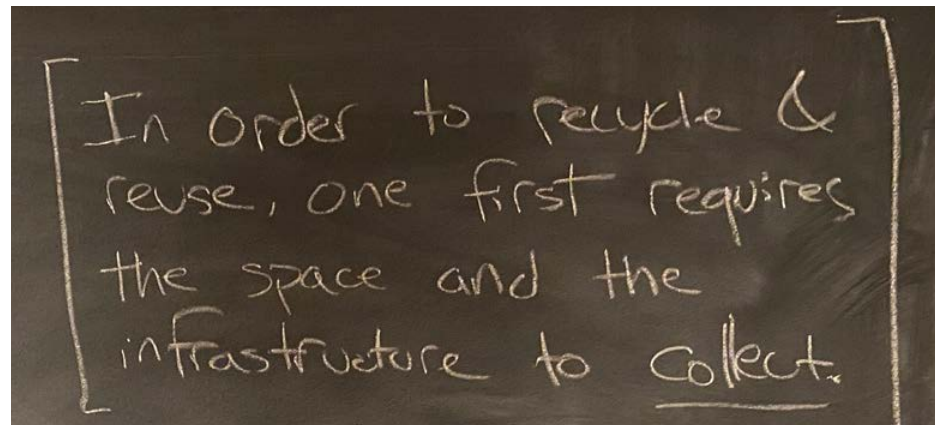 In order to recycle &
reuse, one first requires
the space and the
infrastructure to collect.